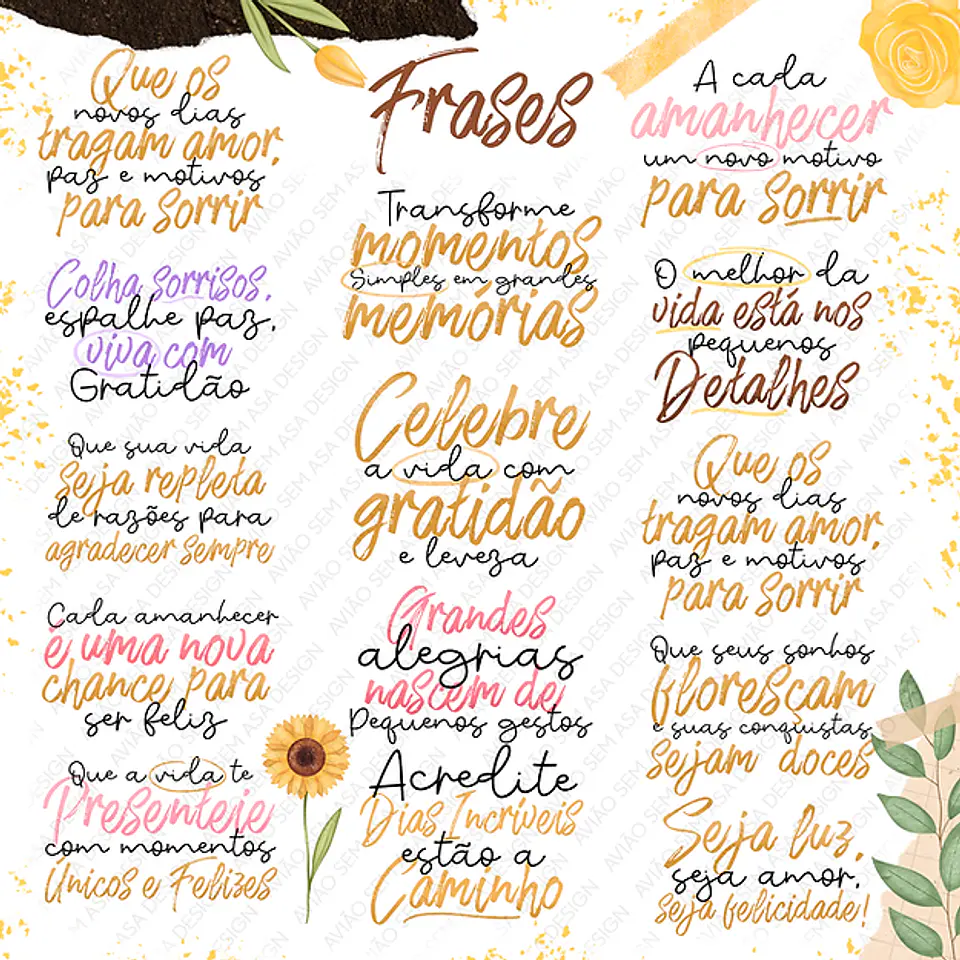 Frases
Que os
novos dias
tragam amor,
paz e motivos
para sorrir
Colha sorrisos,
espalhe paz,
viva com
Gratidão
Que sua vida
seja repleta
de razões para
agradecer sempre
Cada amanhecer
é uma nova
chance para
ser feliz
Que a vida te
Presenteie
com momentos
Únicos e Felizes
Transforme
momentos
Simples em grandes
memórias
Celebre
a vida com
gratidão
e leveza
Grandes
alegrias
nascem de
Pequenos gestos
Acredite
Dias Incríveis
estão a
Caminho
A cada
amanhecer
um novo motivo
para sorrir
O melhor da
vida está nos
pequenos
Detalhes
Que os
novos dias
tragam amor,
paz e motivos
para sorrir
Que seus sonhos
floresçam
e suas conquistas
sejam doces
Seja luz,
seja amor,
seja felicidade!
AVIÃO SEM ASA DESIGN